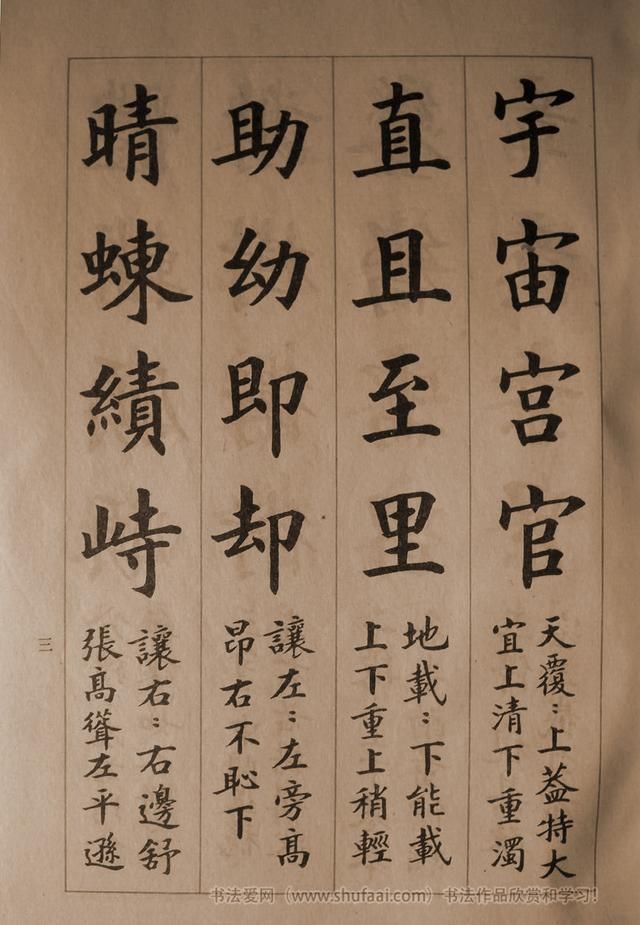 宇宙宮官
天覆：上蓋特大
宜上清下重濁
直且至里
地載：下能載
上下重上稍輕
助幼即却
讓左：左旁高
昂右不恥下
晴蝀績峙
讓右：右邊舒
張高聳左平遜
三
书法爱网（www.shufaai.com）书法作品欣赏和学习！